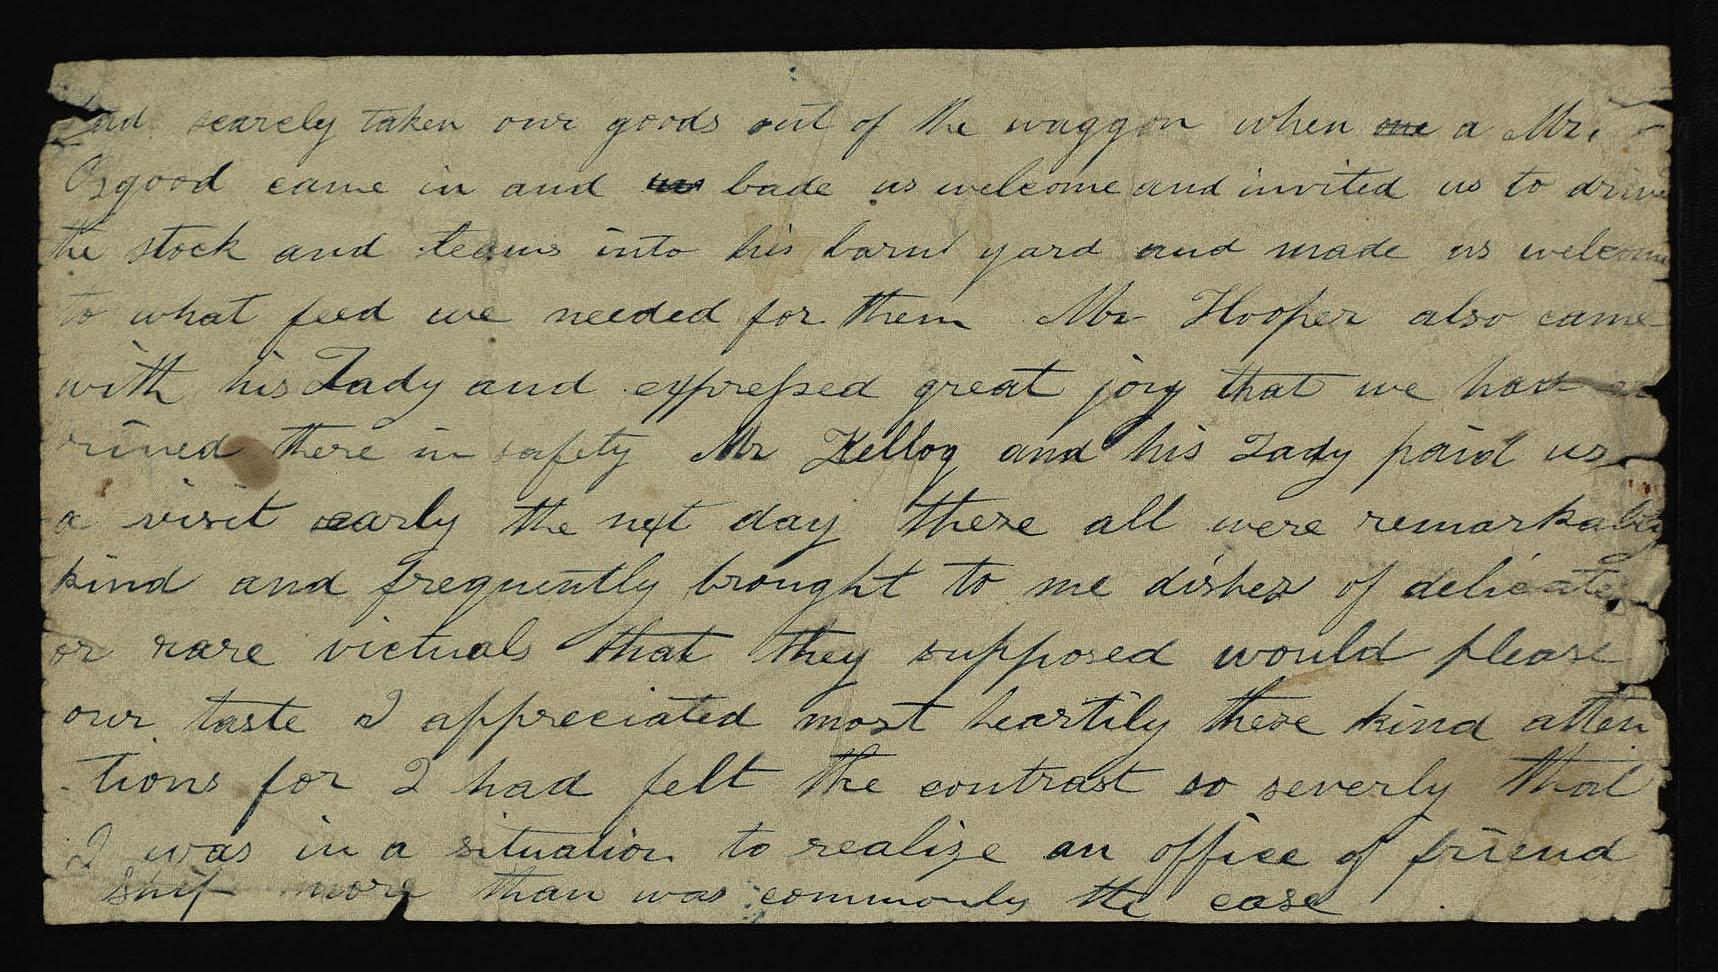 had scarcely taken our goods out of the waggon when one a Mr.
Osgood came in and us bade us welcome and invited us to drive
the stock and teams into his barn yard and made us welcome
to what feed we needed for them Mr Hooper also came
with his Lady and expressed great joy that we had ar
rived there in safety Mr Kellog and his Lady paid us
a visit early the next day these all were remarkably
kind and frequently brought to me dishes of delicate
or rare victuals that they supposed would please
our taste I appreciated most heartily these kind atten
tions for I had felt the contrast so severly that
I was in a situation to realize an office of friend
ship more than was commonly the case